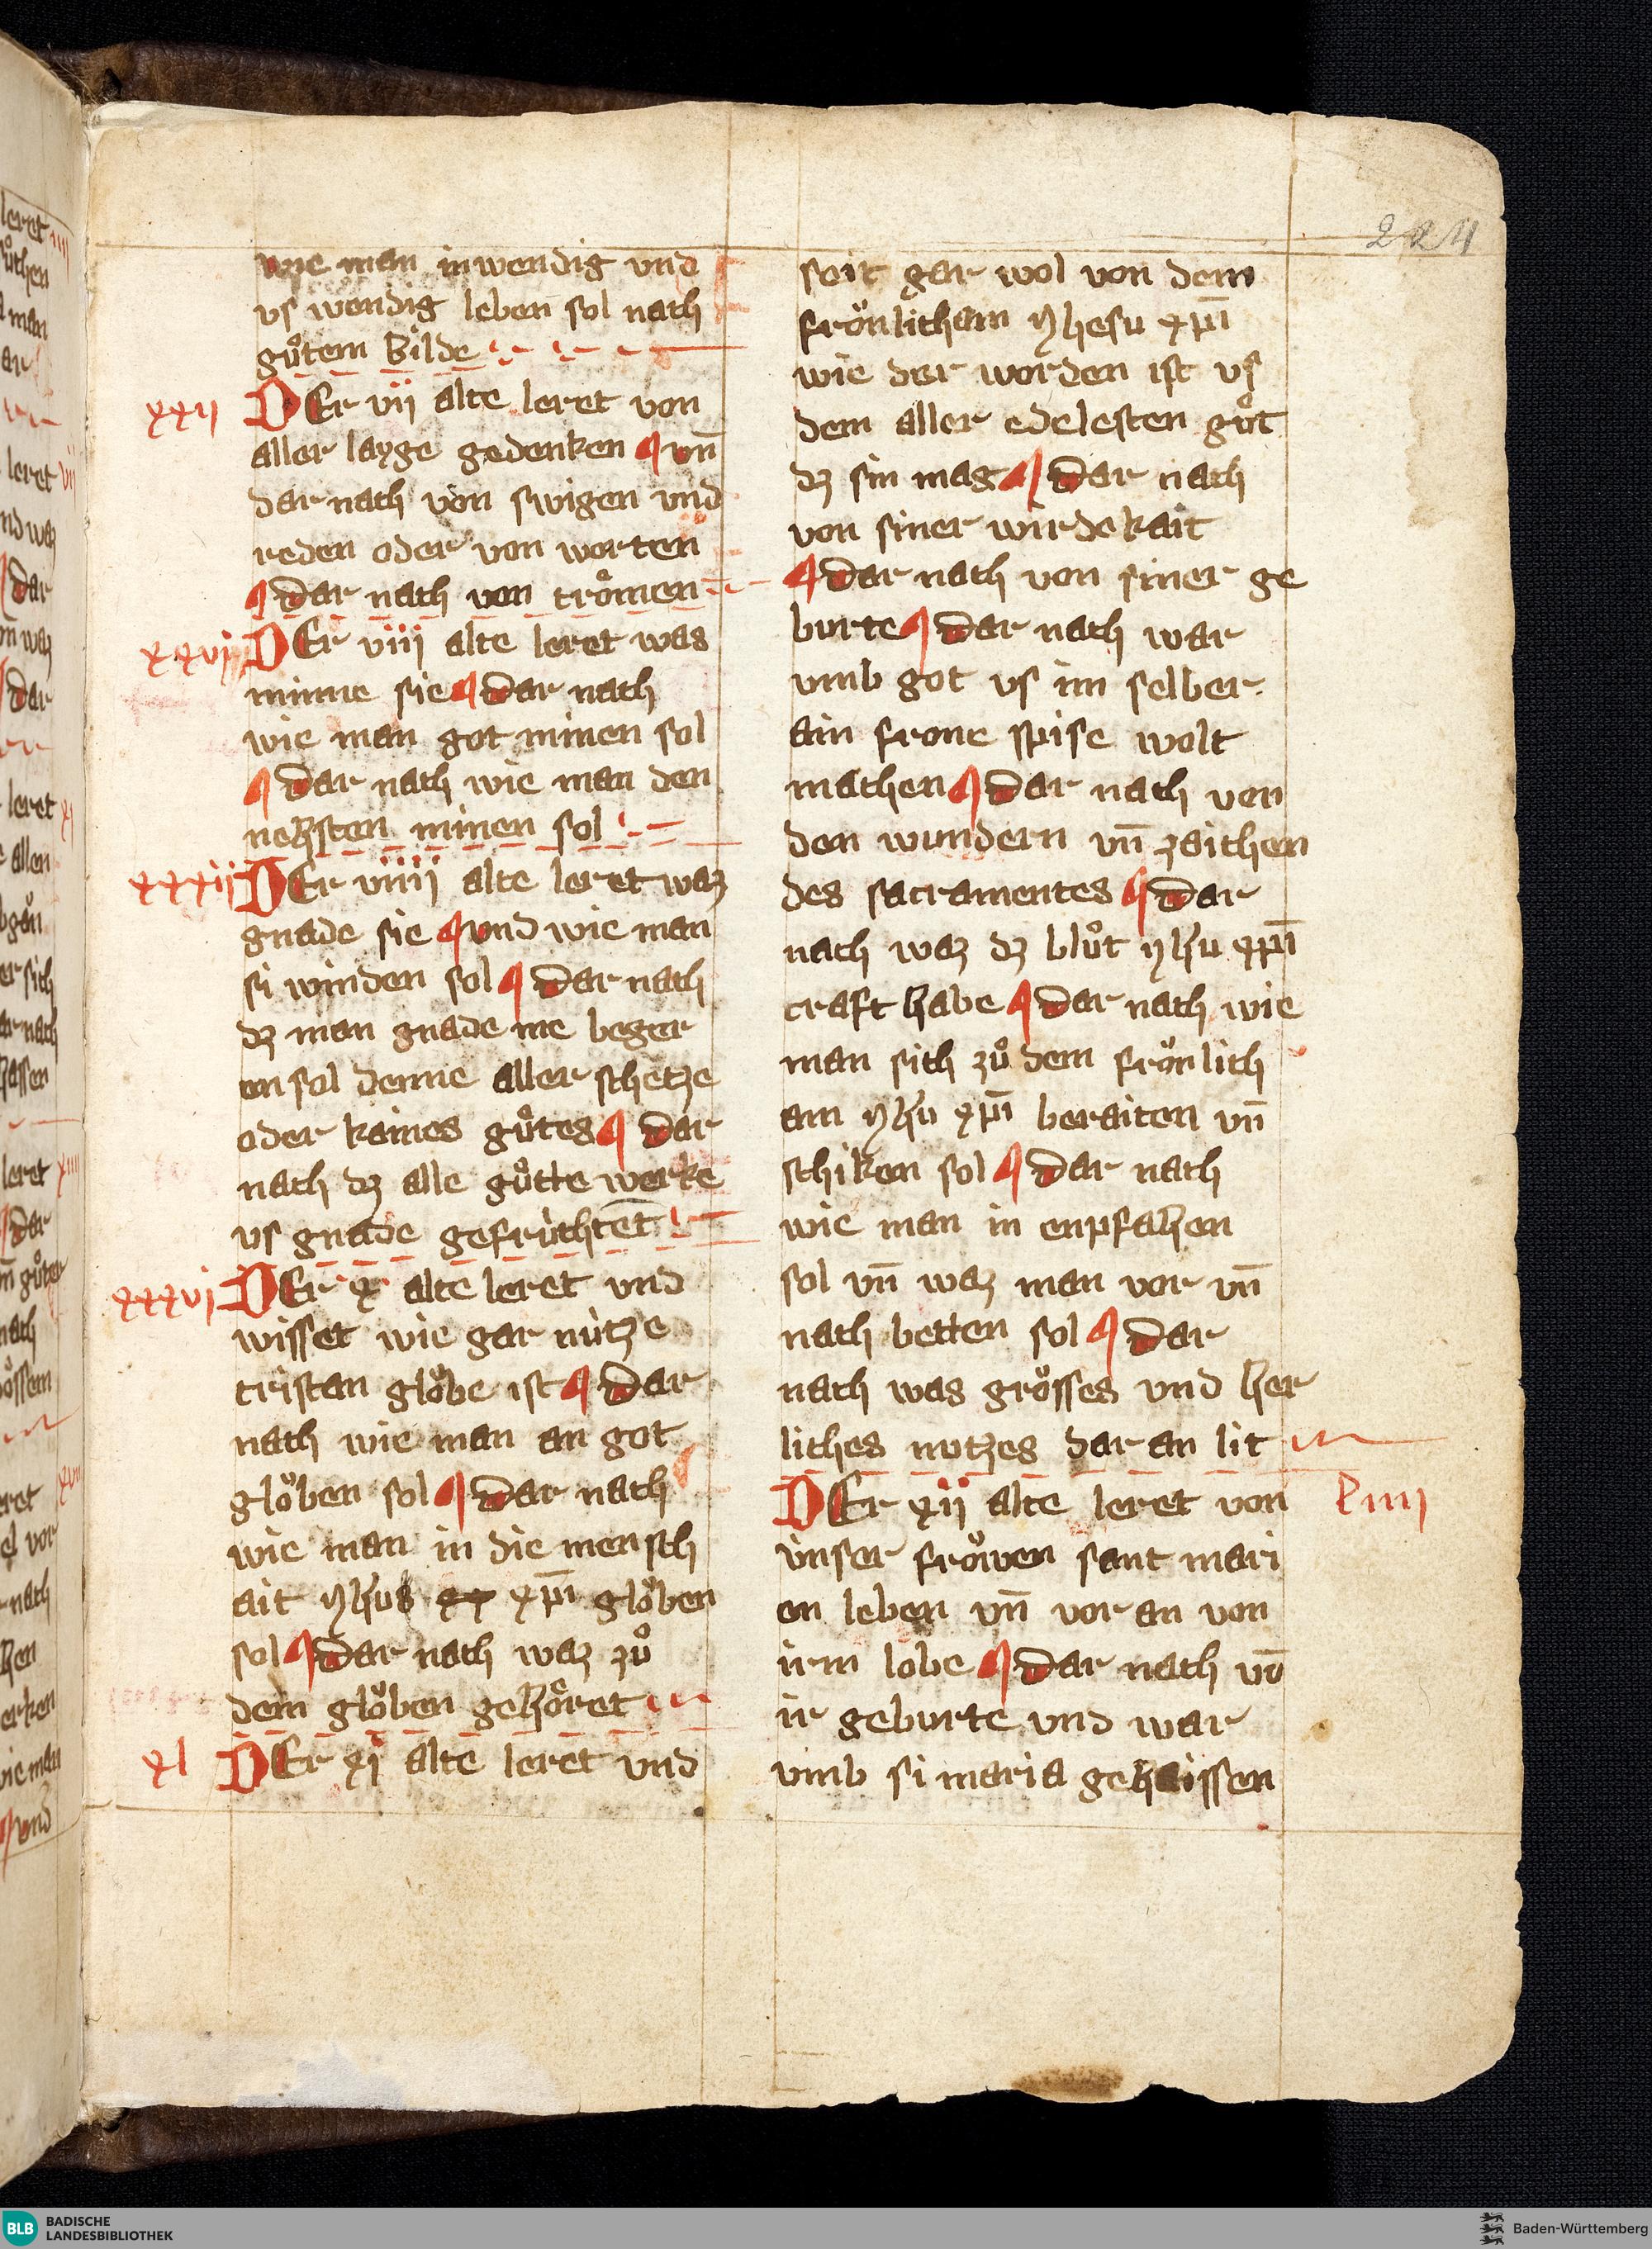 224
wie man inwendig vnd
vs wendig leben sol nach
guͦtem bilde
xxij DEr vii alte leret von
aller layge gedenken ¶ vn̄
dar nach von swigen vnd
reden oder von worten
¶ dar nach von troͤmen
xxvij DEr viii alte leret was
minne sie ¶ dar nach
wie man got minen sol
¶ dar nach wie man den
nehsten minen sol
xxxij DEr viiii alte leret waz
gnade sie ¶ vnd wie man
si winden sol ¶ dar nach
dz man gnade me beger
en sol denne aller schetze
oder kaines guͦtes ¶ dar
nach dz alle guͦtte werke
vs gnade gefrúchtet
xxxvj DEr x alte leret vnd
wisset wie gar nútze
cristan gloͮbe ist ¶ dar
nach wie man an got
gloͮben sol ¶ dar nach
wie man in die mensch
ait yhsus xp xp̄i gloͮben
sol ¶ dar nach waz zuͦ
dem gloͮben gehoͤret
xl DEr xi alte leret vnd
seit gar wol von dem
froͤnlicham yhesu xp̄i
wie der worden ist vs
dem aller edelesten guͦt
dz sin mag ¶ dar nach
von siner wirdekait
¶ dar nach von siner ge
burte ¶ dar nach war
vmb got vs im selber
ain frone spise wolt
machen ¶ dar nach von
den wundern vn̄ zaichen
des sacramentes ¶ dar
nach waz dz bluͦt yhsu xp̄i
craft habe ¶ dar nach wie
man sich zuͦ dem froͤnlich
am yhsu xp̄i beraiten vn̄
schiken sol ¶ dar nach
wie man in enpfahen
sol vn̄ waz man vor vn̄
nach betten sol ¶ dar
nach was groͤsses vnd her
liches nutzes dar an lit
DEr xii alte leret von liiij
únser froͮwen sant mari
en leben vn̄ vor an von
irm lobe ¶ dar nach vō
ir geburte vnd war
vmb si maria gehaissen
BLB BADISCHE
LANDESBIBLIOTHEK
Baden-Württemberg